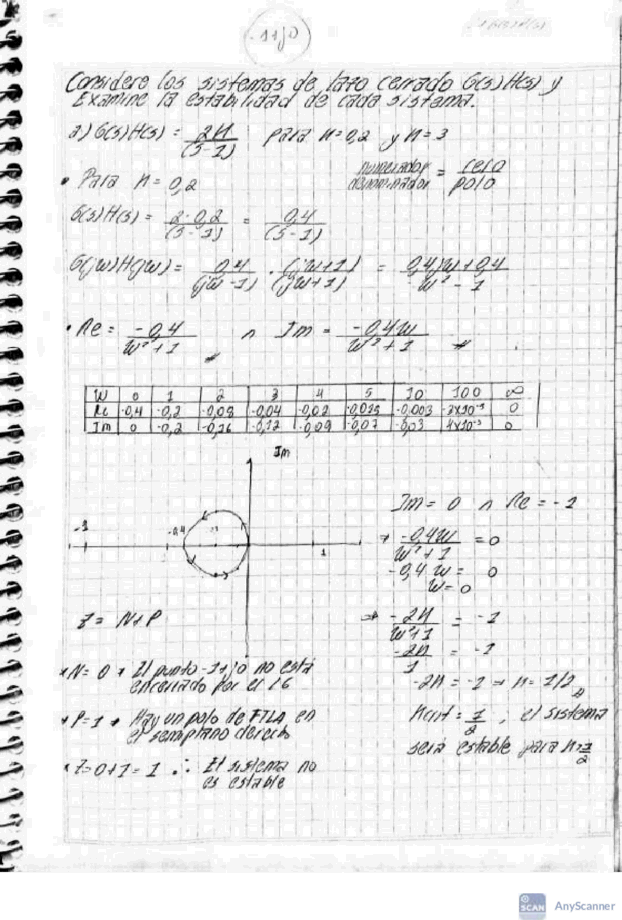 -1+j0
Considere los sistemas de lazo cerrado G(s)H(s) y
Examine la estabilidad de cada sistema.
a) G(s)H(s) = 2K / (S-1) para K=0,2 y K=3
numerador / denominador = cero / polo
• Para K=0,2
G(s)H(s) = 2·0,2 / (S-1) = 0,4 / (S-1)
G(jw)H(jw) = 0,4 / (jw-1) · (jw+1) / (jw+1) = 0,4jw+0,4 / -w²-1
• Re = -0,4 / w²+1 ∧ Im = -0,4w / w²+1
W 0 1 2 3 4 5 10 100 ∞
Re -0,4 -0,2 -0,08 -0,04 -0,02 -0,015 -0,003 0
Im 0 -0,2 -0,16 -0,12 -0,09 -0,07 -0,03 4x10⁻³ 0
Im
-0,4
1
Im = 0 ∧ Re = -1
⇒ -0,4w / w²+1 = 0
-0,4 w = 0
w = 0
Z = N+P
⇒ -2K / w²+1 = -1
-2K / 1 = -1
-2K = -1 → K = 1/2
* N=0 → El punto -1+j0 no está
encerrado por el LG
* P=1 → Hay un polo de FTLA en
el semiplano derech
* Z=0+1=1 ∴ El sistema no
es estable
Kcrit = 1/2 ; el sistema
será estable para
SCAN
AnyScanner